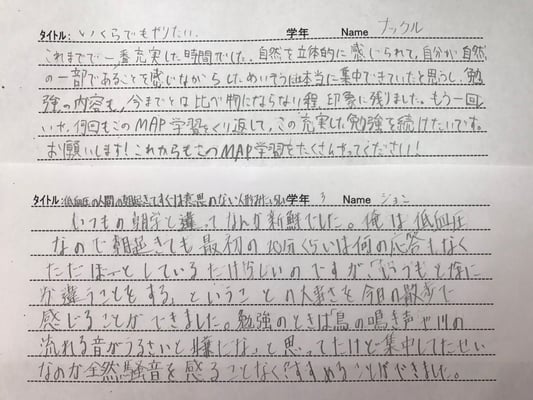 タイトル: いくらでもやりたい. 学年 Name ナックル
これまでで一番充実した時間でした。自然を立体的に感じられて,自分が自然
の一部であることを感じながらしためいそうは本当に集中できていたと思うし,勉
強の内容も,今までとは比べ物にならない程,印象に残りました。もう一回
いや,何回もこのMAP学習をくり返して,この充実した勉強を続けたいです。
お願いします!これからもこのMAP学習をたくさんやってください!
タイトル:低血圧の人間の朝起きてすぐは意思のない人形みたい 学年 3 Name ション
いつもの朝学と違ってなんか新鮮でした。俺は低血圧
なので朝起きても最初の20分くらいは何の応答もなく
ただぼーとしているだけらしいのですが、「いつもと
が違うことをする」ということの大事さを今日の散歩で
感じることができました。勉強のときは鳥の鳴き声や川の
流れる音がうるさいと嫌だなっと思ってたけど集中してたせい
なのか全然騒音を感ることなくすすめることができました。